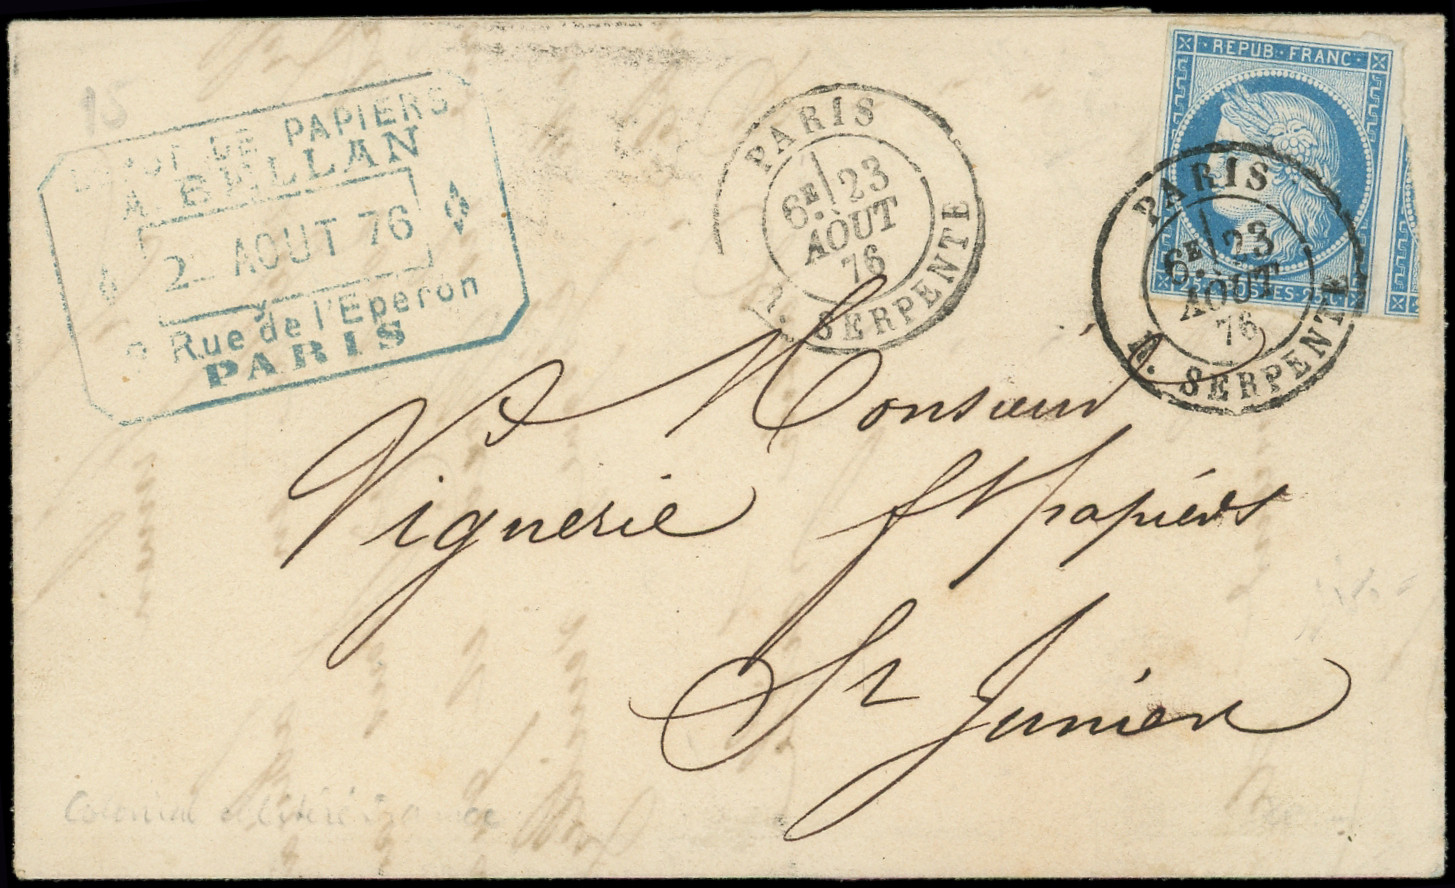 15
DEPOT DE PAPIERS
A BELLAN
2_ AOUT 76
Rue de l'Eperon
PARIS
PARIS
6E 23
AOÛT
76
R. SERPENTE
REPUB·FRANC·
PARIS
6E 23
AOÛT
76
R. SERPENTE
Monsieur
Vignerie ft papiers
St Junien
Colonial